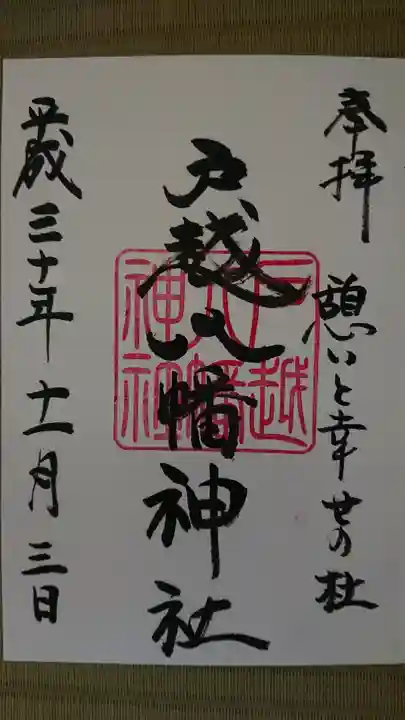 奉拝 憩いと幸せの杜
戸越八幡神社
戸越八幡神社
平成三十年十一月三日